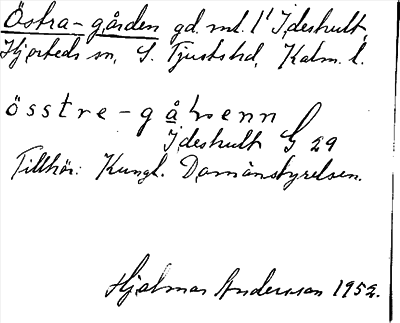 Östra-gården gd. mt. 1' Ideshult,
Hjorteds sn, S. Tjusts hd, Kalm. l.
össtre-gåhenn
Ideshult G 29
Tillhör: Kungl. Domänstyrelsen.
Hjalmar Andersson 1952.